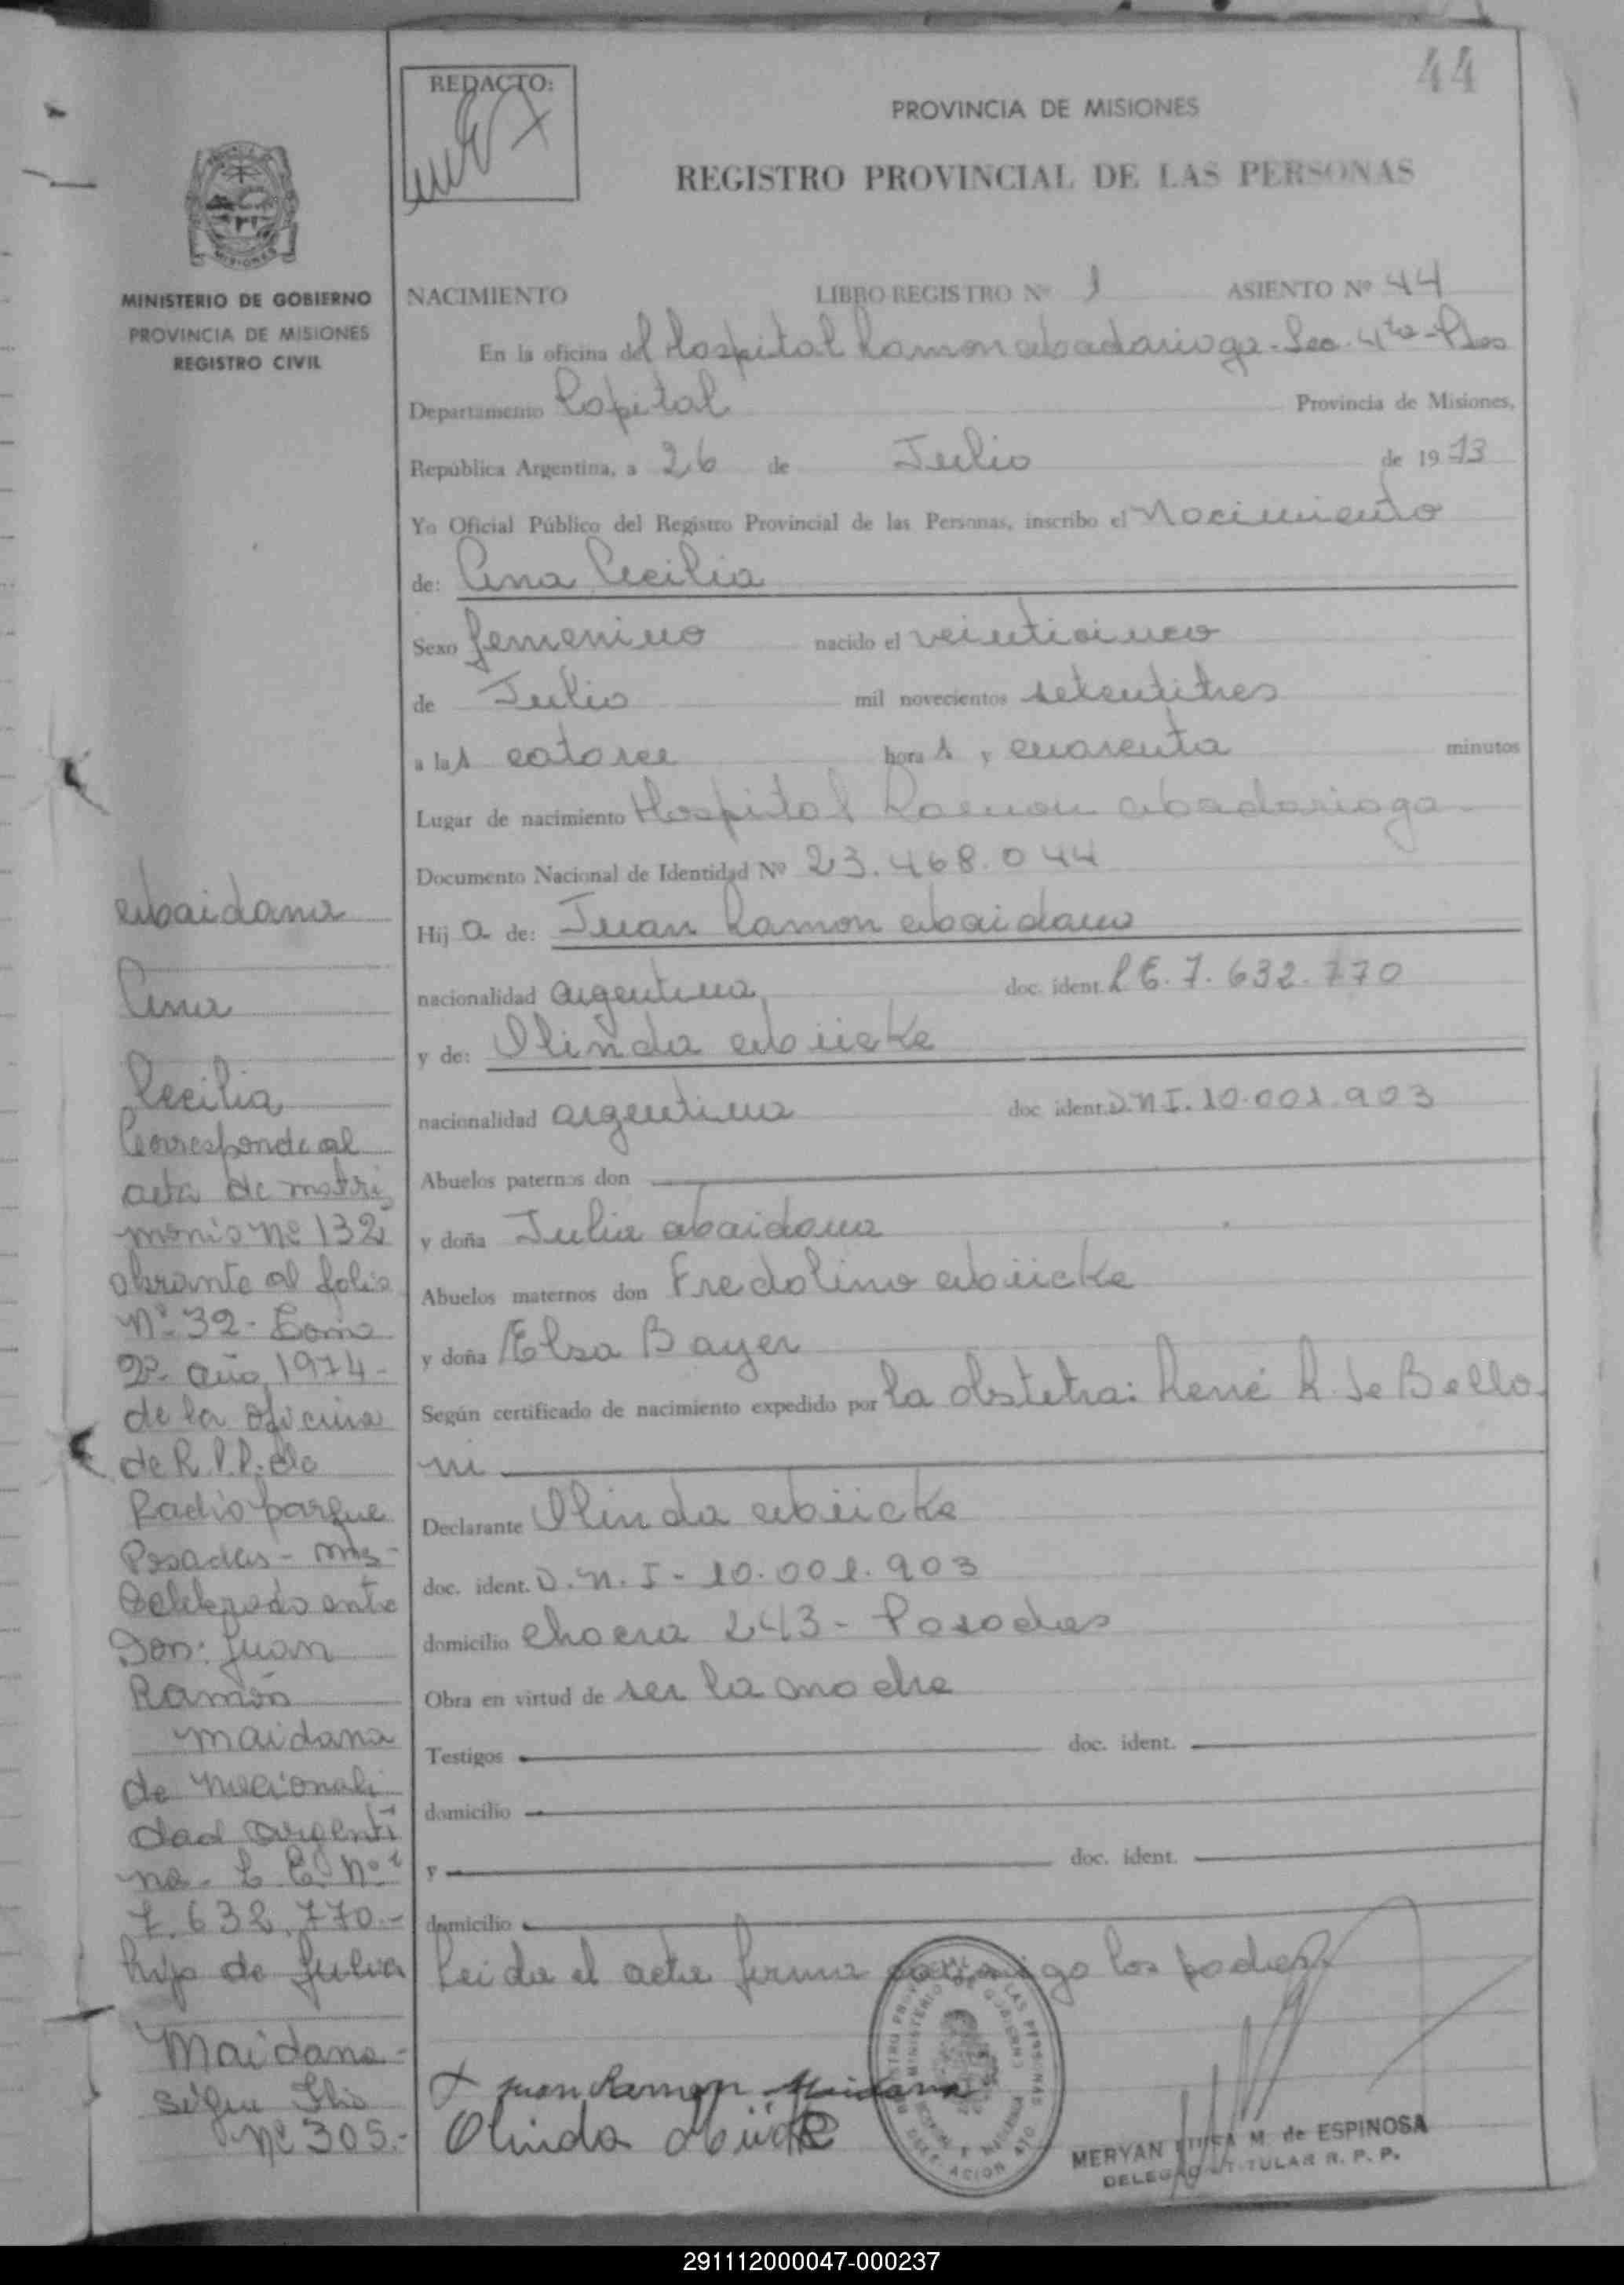 44
REDACTO:
PROVINCIA DE MISIONES
REGISTRO PROVINCIAL DE LAS PERSONAS
MISIONES
MINISTERIO DE GOBIERNO
PROVINCIA DE MISIONES
REGISTRO CIVIL
NACIMIENTO LIBRO REGISTRO Nº 1 ASIENTO Nº 44
En la oficina del Hospital Ramon Madariaga - Sec. 4ta - Pdas
Departamento Capital Provincia de Misiones,
República Argentina, a 26 de Julio de 1973
Yo Oficial Público del Registro Provincial de las Personas, inscribo el Nacimiento
de: Ana Cecilia
Sexo femenino nacido el veinticinco
de Julio mil novecientos setentitres
a las catorce horas y cuarenta minutos
Lugar de nacimiento Hospital Ramon Madariaga
Documento Nacional de Identidad Nº 23.468.044
Hija de: Juan Ramon Maidana
nacionalidad argentina doc. ident. L.E. 7.632.770
y de: Olinda Mücke
nacionalidad argentina doc. ident. D.N.I. 10.001.903
Abuelos paternos don
y doña Julia Maidana
Abuelos maternos don Fredolino Mücke
y doña Elsa Bayer
Según certificado de nacimiento expedido por la obstetra: René R. de Bello-
ni
Declarante Olinda Mücke
doc. ident. D.N.I - 10.001.903
domicilio chacra 243 - Posadas
Obra en virtud de ser la madre
Testigos doc. ident.
domicilio
y doc. ident.
domicilio
Leida el acta firma conmigo los padres.
Juan Ramon Maidana
Olinda Mücke
MERYAN M. de ESPINOSA
DELEGADO TITULAR R. P. P.
Maidana
Ana
Cecilia
Corresponde al
acta de matri
monio nº 132
obrante al folio
Nº 32 - Tomo
2º año 1974 -
de la oficina
de R.P.P. de
Radio parque
Posadas - Mns -
Celebrado entre
Don: Juan
Ramón
Maidana
de nacionali
dad argenti
na - L.E. Nº
7.632.770.-
hijo de Julia
Maidana -
sigue Flio
nº 305.-
291112000047-000237